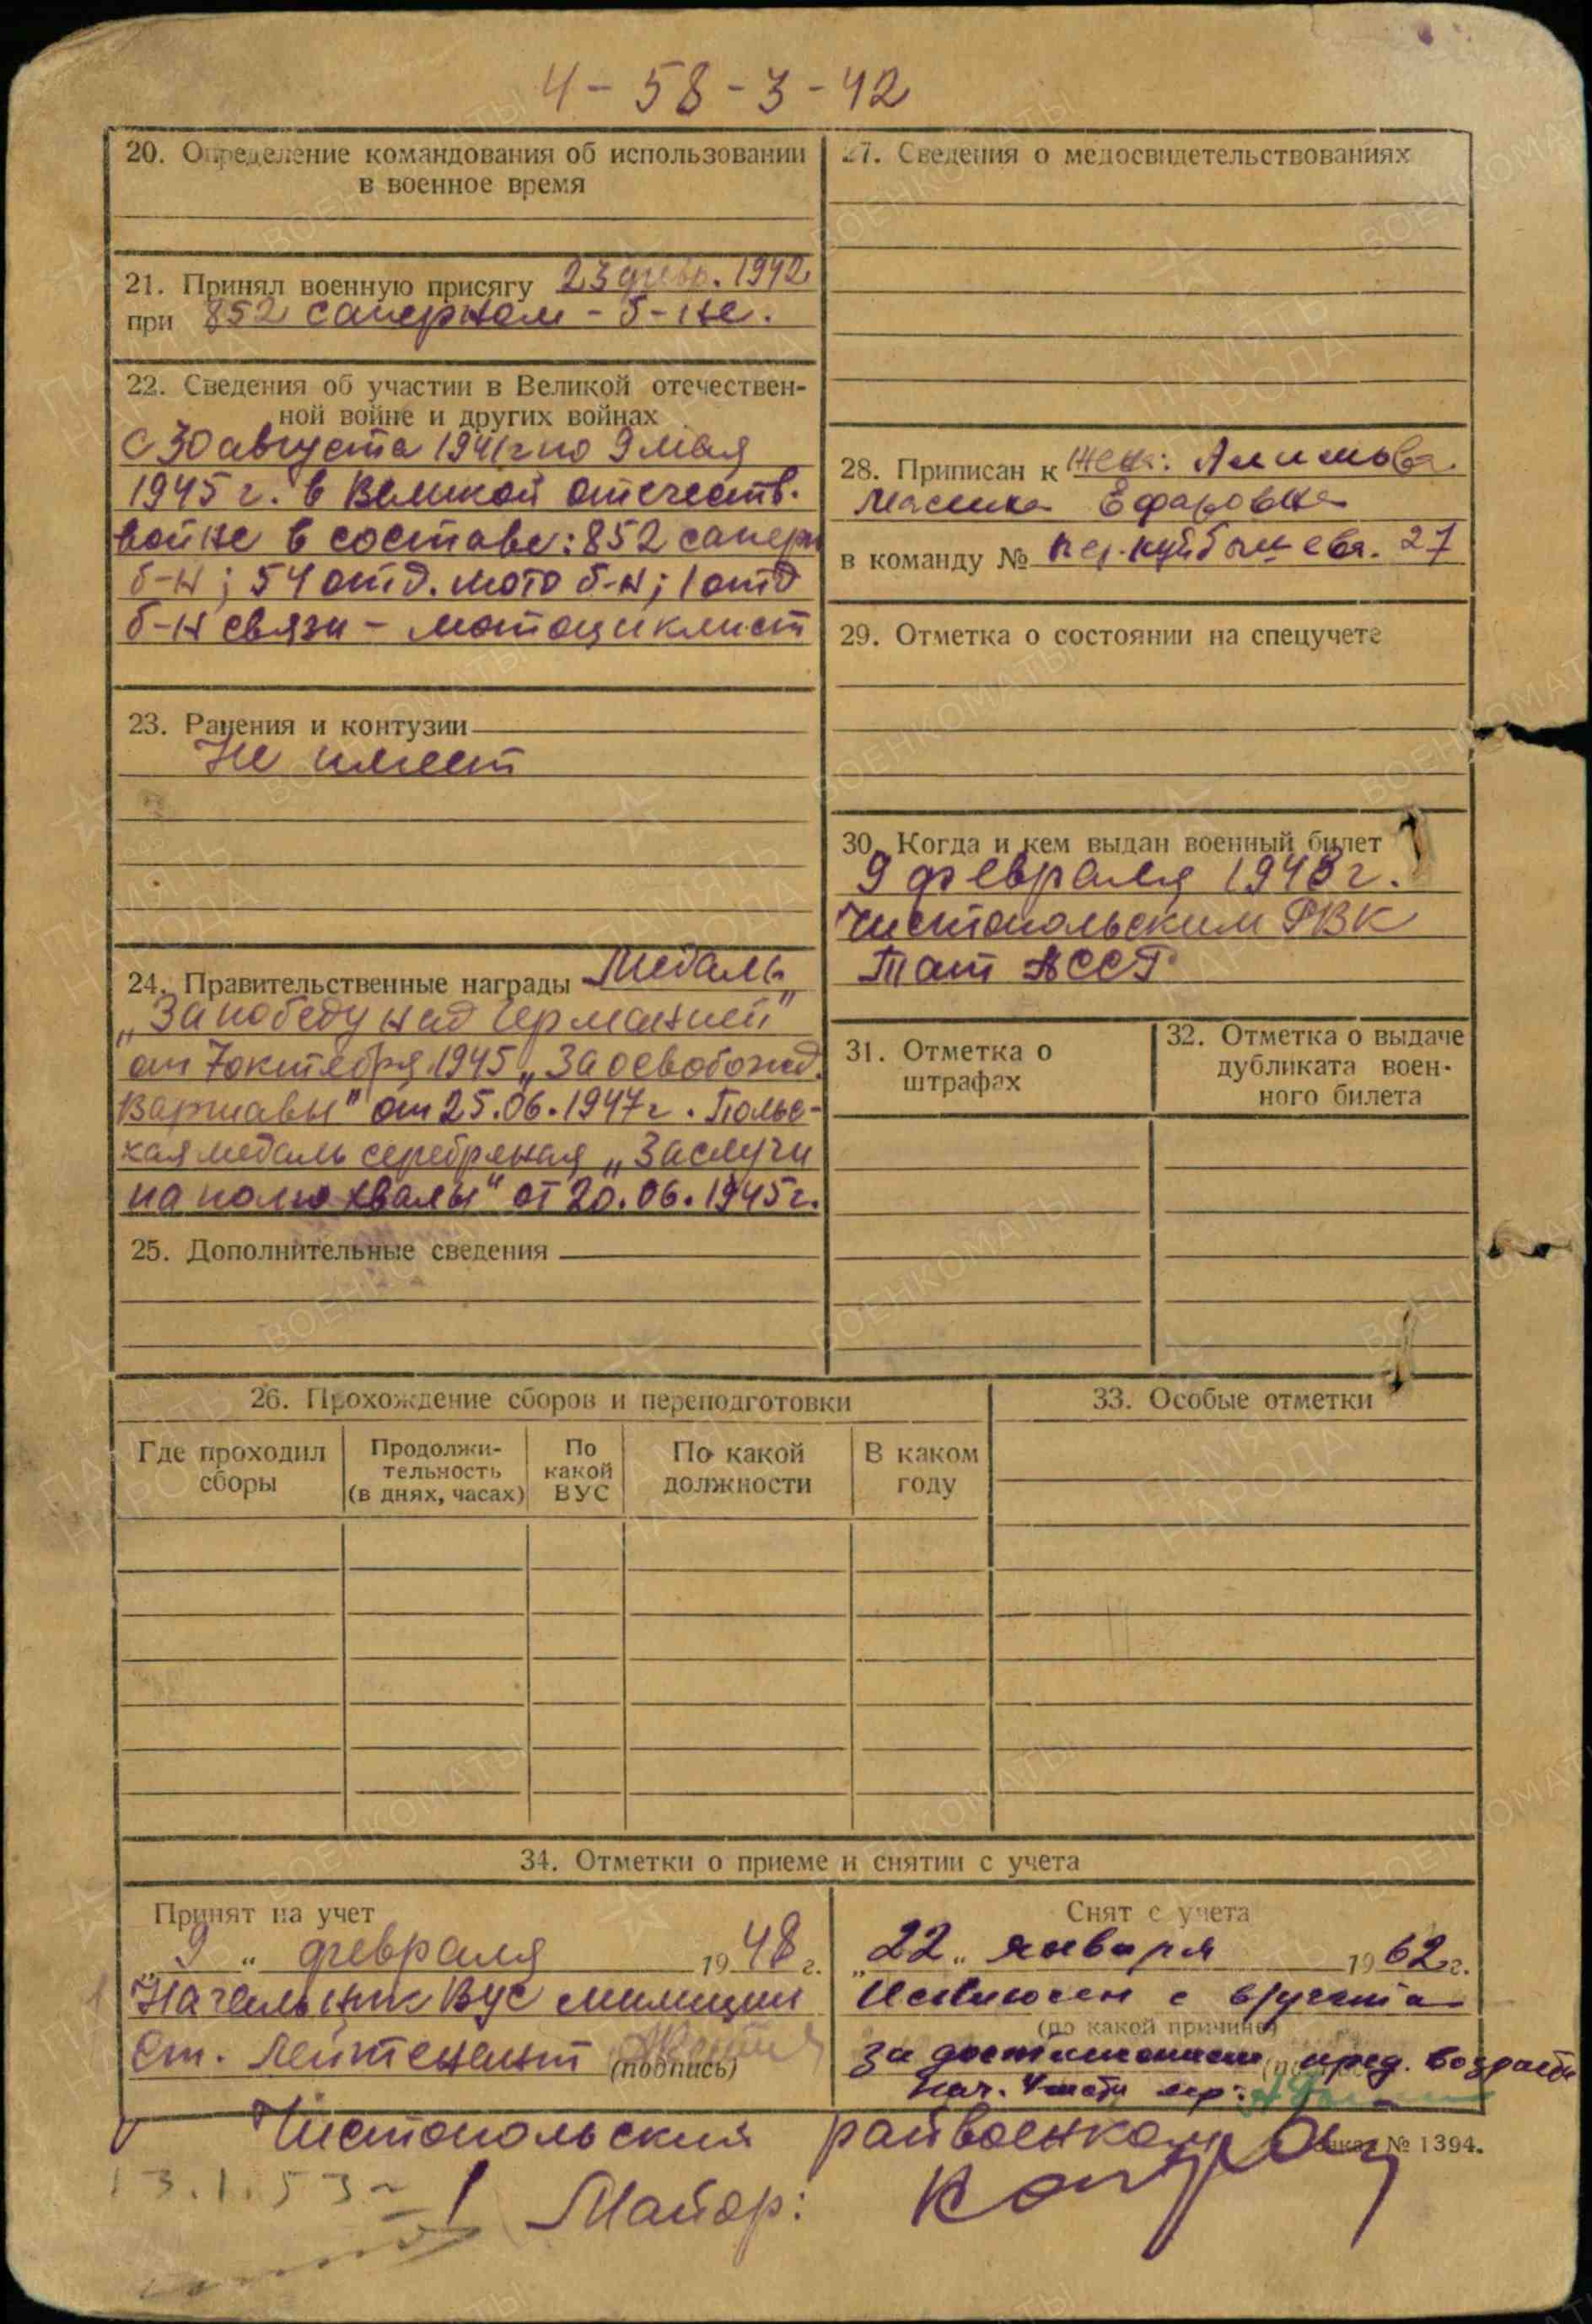 4-58-3-42
20. Определение командования об использовании
в военное время
21. Принял военную присягу 23 февр. 1942
при 852 саперном - б-не.
22. Сведения об участии в Великой отечествен-
ной войне и других войнах
С 30 августа 1941г по 9 мая
1945 г. в Великой отечеств.
войне в составе: 852 саперн
б-н; 54 отд. мото б-н; 1 отд
б-н связи - мотоциклист
23. Ранения и контузии
Не имеет
24. Правительственные награды Медаль
„За победу над Германией"
от 7 октября 1945 „За освобожд.
Варшавы" от 25.06.1947г. Польс-
кая медаль серебряная „Заслуги
на полю хвалы" от 20.06.1945г.
25. Дополнительные сведения
27. Сведения о медосвидетельствованиях
28. Приписан к Жена: Алимова
Ефаровна
в команду № пер. Куйбышева. 27
29. Отметка о состоянии на спецучете
30. Когда и кем выдан военный билет
9 февраля 1948 г.
Чистопольским РВК
Тат АССР
31. Отметка о
штрафах
32. Отметка о выдаче
дубликата воен-
ного билета
26. Прохождение сборов и переподготовки
Где проходил
сборы
Продолжи-
тельность
(в днях, часах)
По
какой
ВУС
По какой
должности
В каком
году
33. Особые отметки
34. Отметки о приеме и снятии с учета
Принят на учет
„ 9 " февраля 1948 г.
Начальник ВУС милиции
Ст. Лейтенант
(подпись)
Снят с учета
„22" января 1962 г.
Исключен с в/учета
(по какой причине)
за достижением пред. возраста
нач. 4 части м-р:
Чистопольский райвоенком
Заказ № 1394.
13.1.53
Майор: